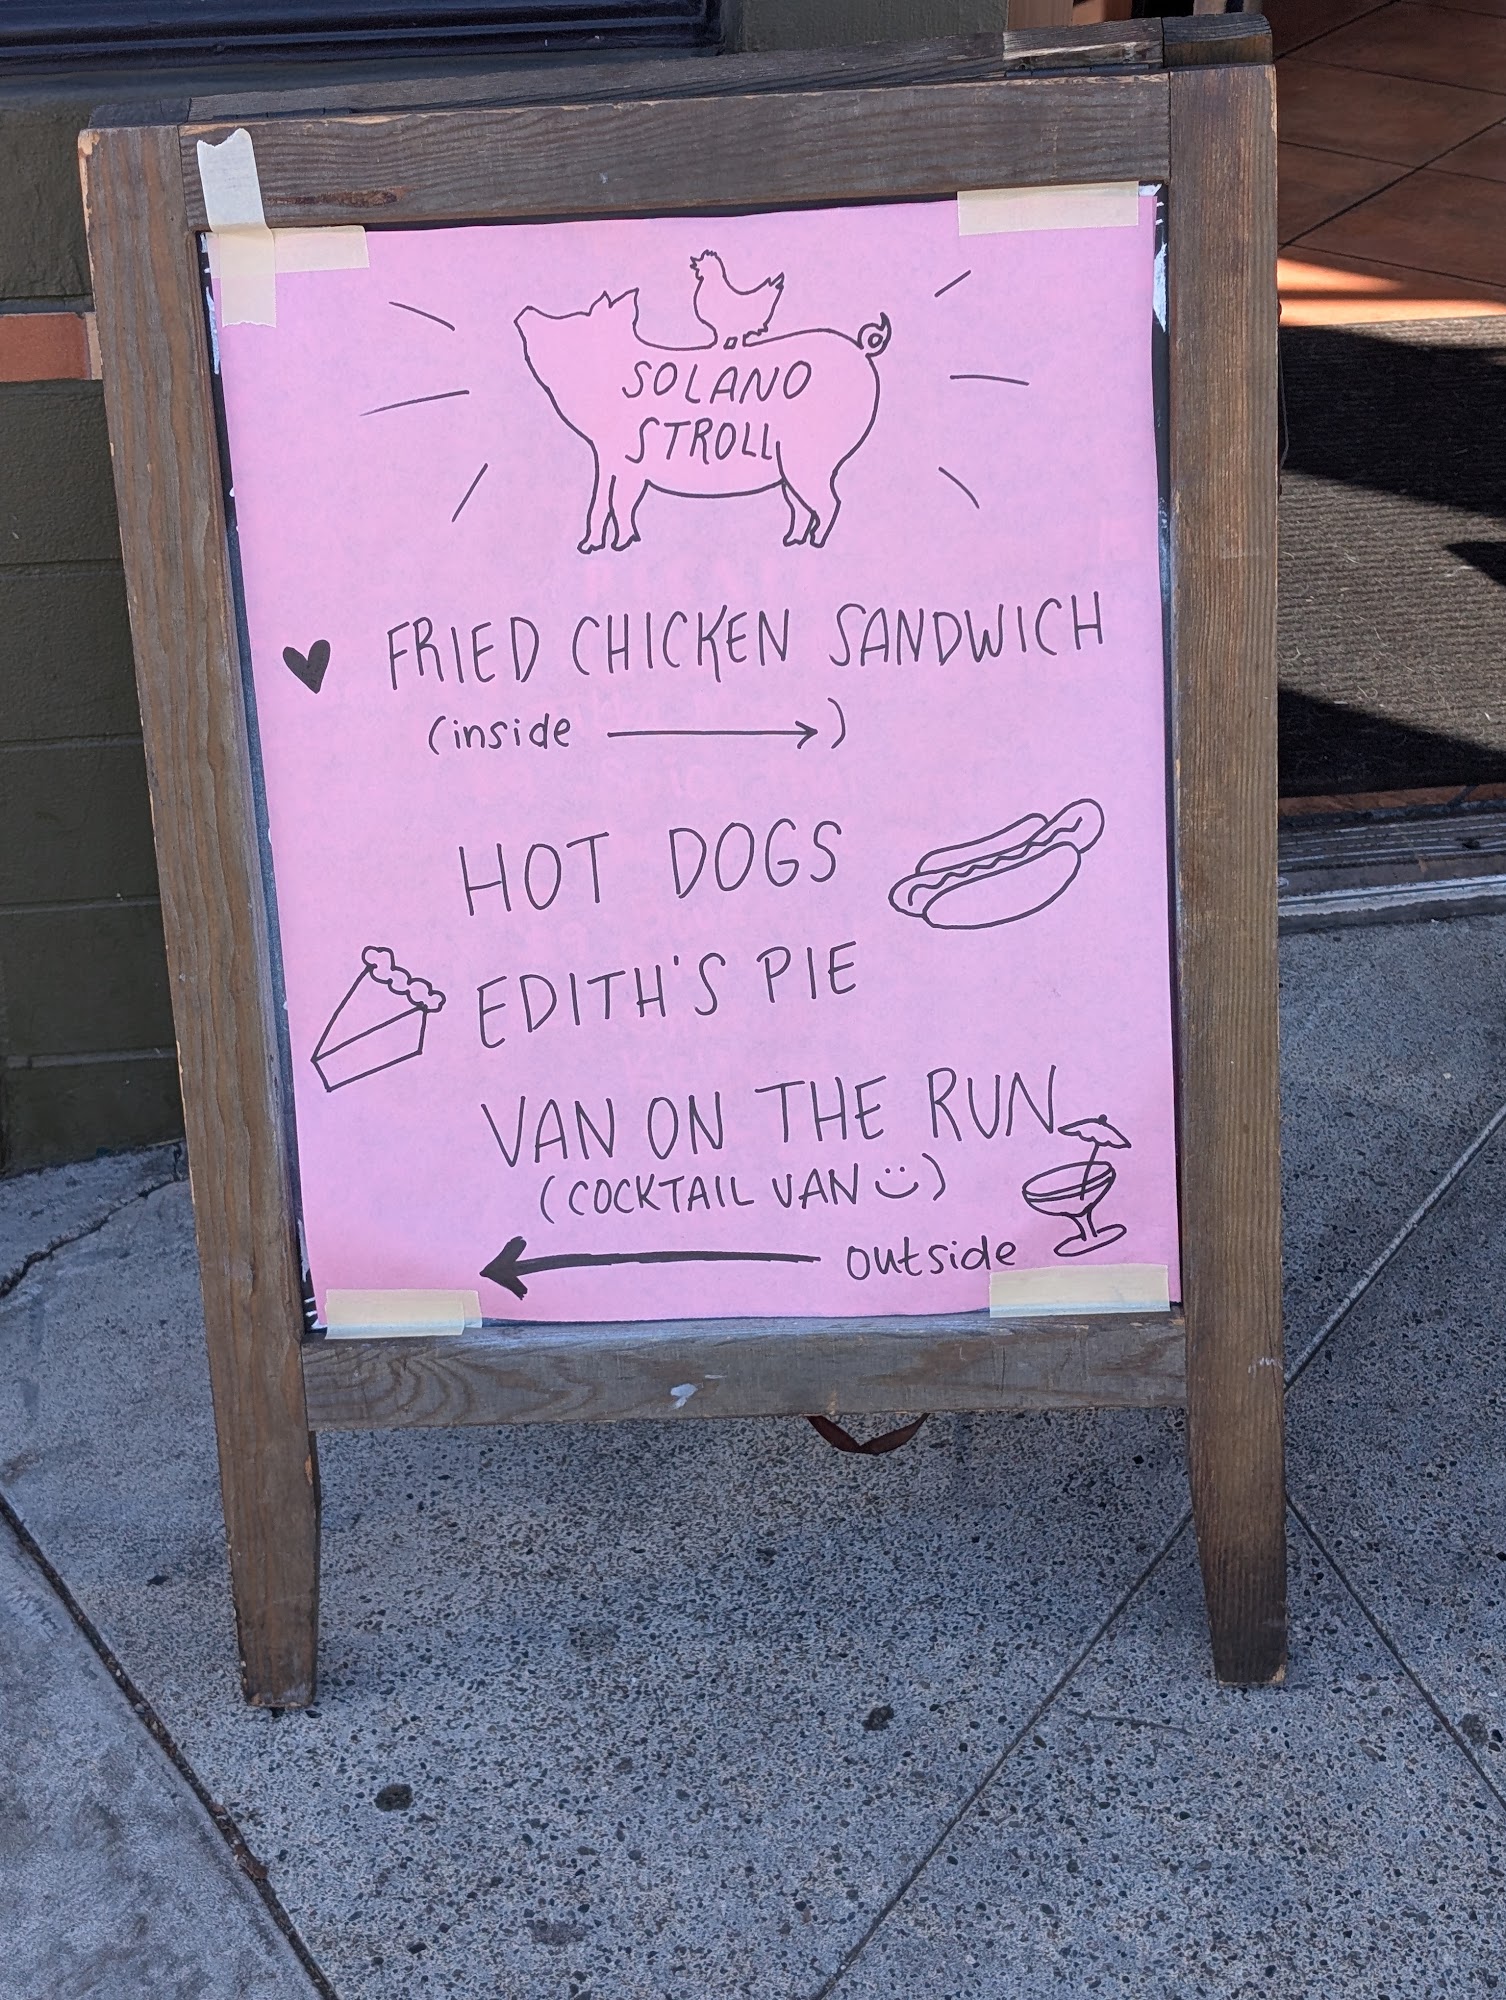 SOLANO
STROLL
FRIED CHICKEN SANDWICH
(inside →)
HOT DOGS
EDITH'S PIE
VAN ON THE RUN
(COCKTAIL VAN Ü)
← outside